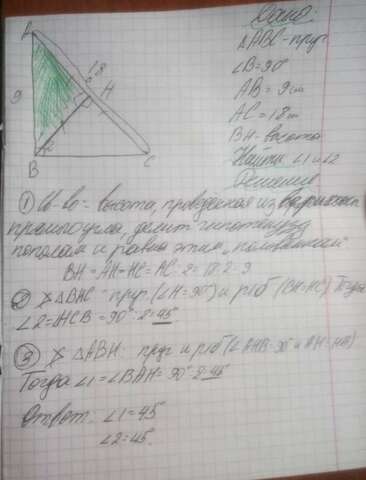 Дано:
△ABC - пруг.
∠B = 90°
AB = 9 см
AC = 18 см
BH - высота
Найти ∠1 и ∠2
Решение
A
9
18
H
B
2
C
① высота, проведённая из вершины
прямого угла, делит гипотенузу
пополам и равна этим "половинкам"
BH = AH = HC = AC : 2 = 18 : 2 = 9
② △BHC - пруг. (∠H = 90°) и р/б (BH=HC). Тогда
∠2 = ∠HCB = 90° : 2 = 45
③ △ABH: пруг и р/б (∠AHB = 90° и AH = HB)
Тогда ∠1 = ∠BAH = 90° : 2 = 45
Ответ: ∠1 = 45
∠2 = 45.